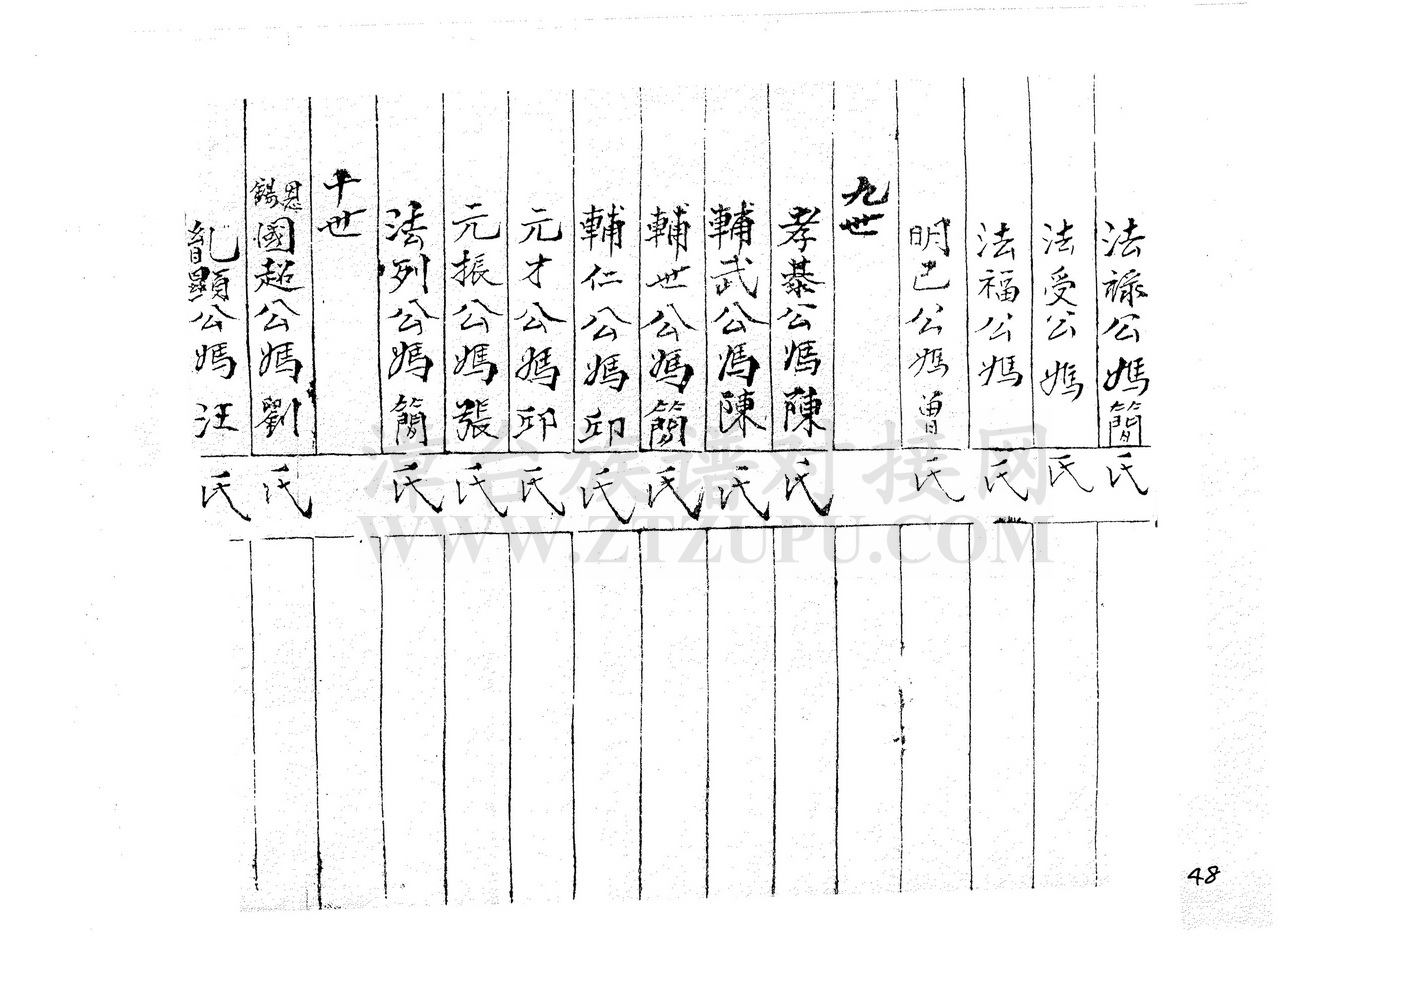 法祿公媽簡氏
法受公媽氏
法福公媽氏
明巴公媽曾氏
九世
孝綦公媽陳氏
輔武公媽陳氏
輔世公媽簡氏
輔仁公媽邱氏
元才公媽邱氏
元振公媽張氏
法列公媽簡氏
十世
恩錫國超公媽劉氏
顯公媽汪氏
漳台族谱对接网
WWW.ZTZUPU.COM
48